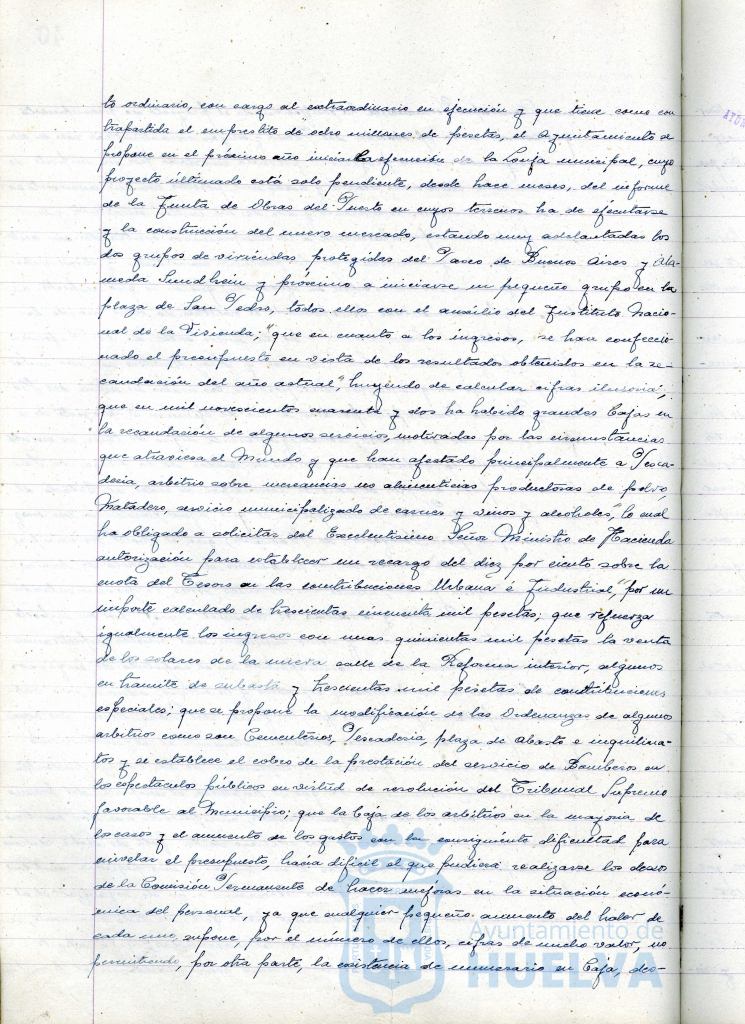 to ordinario, con cargo al extraordinario en ejecución y que tiene como con
trapartida el emprestito de ocho millones de pesetas, el Ayuntamiento se
propone en el próximo año iniciar la ejecución de la Lonja municipal, cuyo
proyecto ultimado está solo pendiente, desde hace meses, del informe
de la Junta de Obras del Puerto en cuyos terrenos ha de ejecutarse
y la construcción del nuevo mercado, estando muy adelantadas los
dos grupos de viviendas protegidas del Paseo de Buenos Aires y Ala-
meda Sundhein y próximo a iniciarse un pequeño grupo en la
plaza de San Pedro, todos ellos con el auxilio del Instituto Nacio-
nal de la Vivienda; "que en cuanto a los ingresos, se han confeccio-
nado el presupuesto en vista de los resultados obtenidos en la re-
caudación del año actual", huyendo de calcular cifras ilusorias;
que en mil novecientos cuarenta y dos ha habido grandes bajas en
la recaudación de algunos servicios, motivadas por las circunstancias
que atraviesa el Mundo y que han afectado principalmente a Pesca-
deria, arbitrio sobre mercancias no alimenticias productoras de polvo,
Matadero, servicio municipalizado de carnes y vinos y alcoholes", lo cual
ha obligado a solicitar del Excelentisimo Señor Ministro de Hacienda
autorización para establecer un recargo del diez por ciento sobre la
cuota del Tesoro en las contribuciones Urbana é Industrial", por un
importe calculado de trescientas cincuenta mil pesetas; que refuerza
igualmente los ingresos con unas quinientas mil pesetas la venta
de los solares de la nueva calle de la Reforma interior, algunos
en tramite de subasta y trescientas mil pesetas de contribuciones
especiales; que se propone la modificación de las Ordenanzas de algunos
arbitrios como son Cementerios, Pescaderia, plaza de Abasto e inquilina-
tos y se establece el cobro de la prestación del servicio de Bomberos en
los espectaculos públicos en virtud de resolución del Tribunal Supremo
favorable al Municipio; que la baja de los arbitrios en la mayoria de
los casos y el aumento de los gastos con la consiguiente dificultad para
nivelar el presupuesto, hacia dificil el que pudiera realizarse los deseos
de la Comisión Permanente de hacer mejoras en la situación econó-
mica del personal, ya que cualquier pequeño aumento del haber de
cada uno, supone, por el número de ellos, cifras de mucho valor, no
permitiendo, por otra parte, la existencia de numerario en Caja, des-
Ayuntamiento de
HUELVA